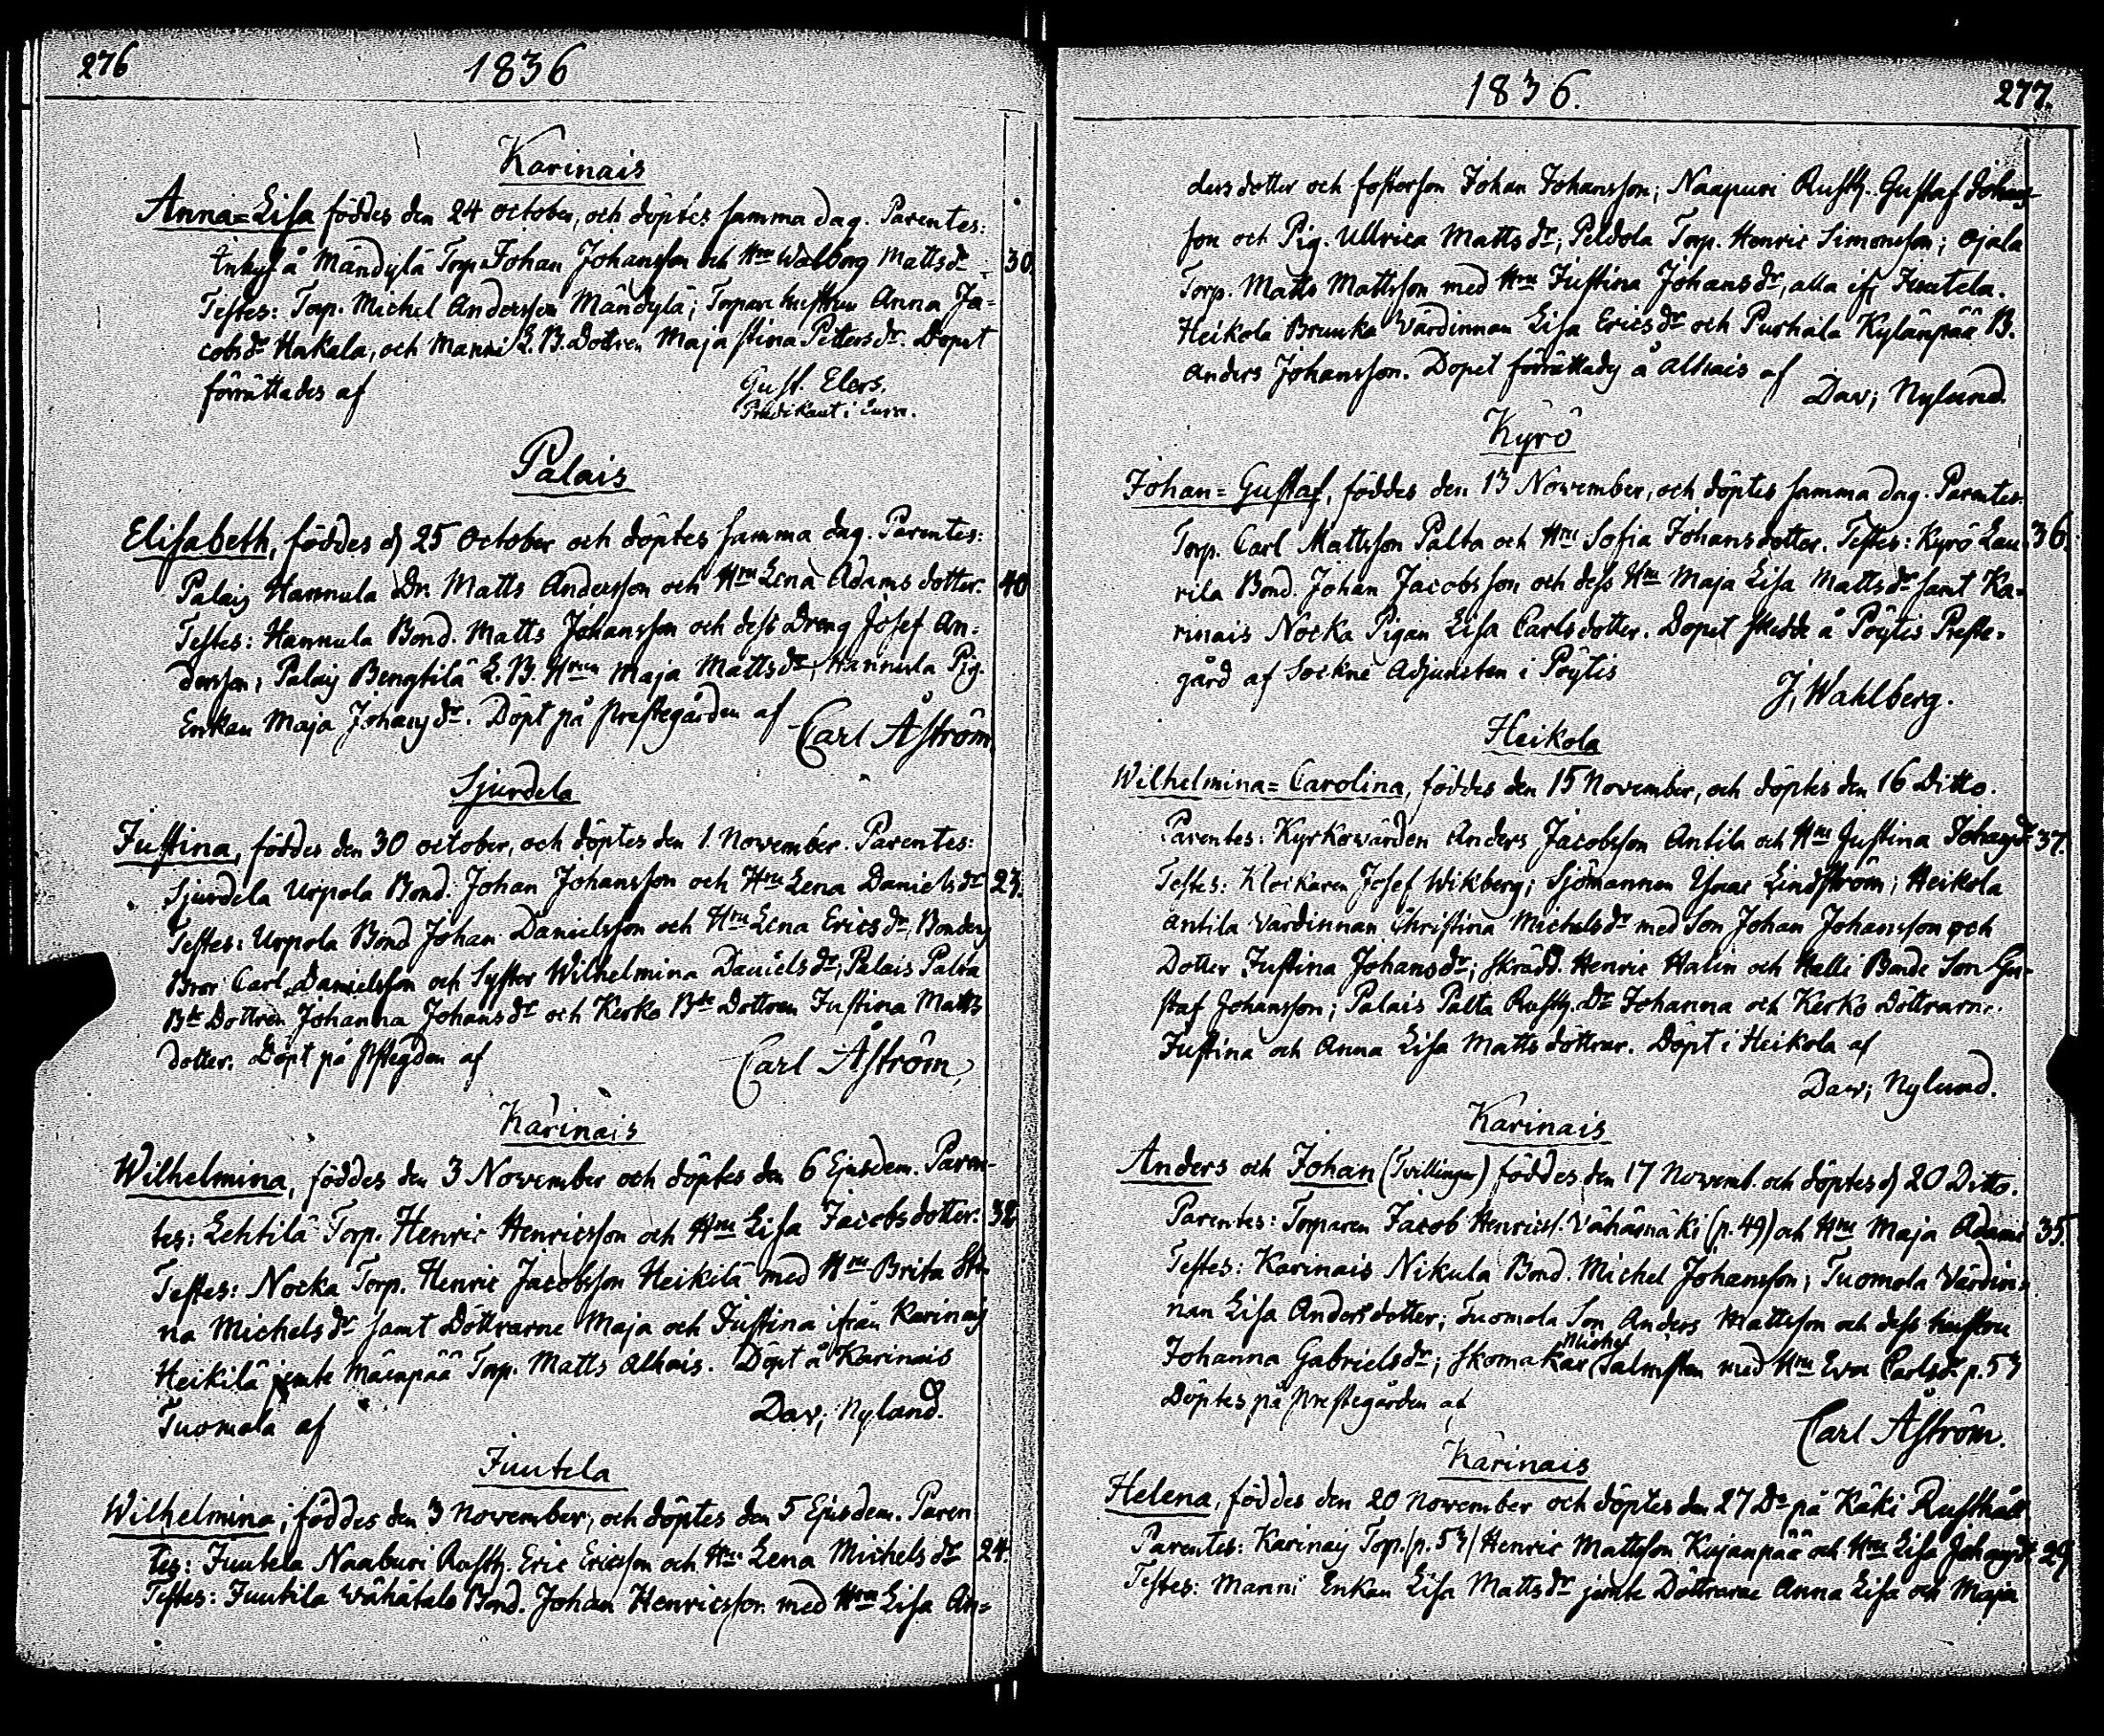 276
1836
Karinais
Anna=Lisa föddes den 24 october, och döptes samma dag. Parentes:
Inhys å Mändylä Torp. Johan Johansson och Hru Walborg Mattsdr 30.
Testes: Torp. Michel Andersson Mändylä; Torpare hustrun Anna Ja=
cobsdr Hakala, och Manni L. B. Dottren Maja Stina Pettersdr. Dopet
förrättades af Gust. Elers.
Prædikant i
Palais
Elisabeth, föddes d 25 october och döptes samma dag. Parentes:
Palais Hannula Dr. Matts Andersson och Hru Lena Adams dotter. 40
Testes: Hannula Bond. Matts Johansson och dess Dreng Josef An=
dersson; Palais Bengtilä L. B. Hru Maja Mattsdr; Hannula Pig.
Enkan Maja Johansdr. Döpt på prestegården af
Carl Åström
Sjurdela
Justina, föddes den 30 october, och döptes den 1. November. Parentes:
Sjurdela Urpola Bond. Johan Johansson och Hru Lena Danielsdr 23.
Testes: Urpola Bond Johan Danielsson och Hru Lena Ericsdr, Bondens
Bror Carl Danielsson och Syster Wilhelmina Danielsdr; Palais Palta
Bde Dottren Johanna Johansdr och Kerko Bde Dottren Justina Matts
dotter. Döpt på Pstegden af
Carl Åström,
Karinais
Wilhelmina, föddes den 3 November och döptes den 6 Ejusdem. Paren-
tes: Lehtilä Torp. Henric Henricsson och Hru Lisa Jacobsdotter. 32
Testes: Nocka Torp. Henric Jacobsson Heikilä med Hru Brita Sti
na Michelsdr samt Döttrarne Maja och Justina ifrån Karinais
Heikilä jemte Mäenpää Torp. Matts Alhais. Döpt å Karinais
Tuomola af Dav; Nylund.
Juutela
Wilhelmina; föddes den 3 November, och döptes den 5 Ejusdem. Paren
tes: Juutela Naaburi Rusth. Eric Ericsson och Hru Lena Michelsdr 24.
Testes: Juutila Wähätalo Bond. Johan Henricsson med Hru Lisa An=
1836.
277.
dersdotter och fosterson Johan Johansson; Naapuri Rusth. Gustaf Johans-
son och Pig. Ullrica Mattsdr; Peldola Torp. Henric Simonsson; Ojala
Torp. Matts Mattsson med Hru Justina Johansdr, alla ifr Juutela.
Heikola Brunka Värdinnan Lisa Ericsdr och Purhala Kylänpää B.
Anders Johansson. Dopet förrättades å Alhais af
Dav; Nylund.
Kyrö
Johan=Gustaf, föddes den 13 November, och döptes samma dag. Parentes.
Torp. Carl Mattsson Palta och Hru Sofia Johansdotter. Testes: Kyrö Lau 36.
rila Bond. Johan Jacobsson och dess Hru Maja Lisa Mattsdr samt Ka-
rinais Nocka Pigan Lisa Carlsdotter. Dopet skedde å Pöytis Preste-
gård af Sockne Adjuncten i Pöytis
J; Wahlberg.
Heikola
Wilhelmina=Carolina, föddes den 15 November, och döptes den 16 Ditto.
Parentes: Kyrkovärden Anders Jacobsson Antila och Hru Justina Johansdr 37.
Testes: Klockaren Josef Wikberg; Sjömannen Isaac Lindström; Heikola
Antila Värdinnan Christina Michelsdr med Son Johan Johansson och
Dotter Justina Johansdr; skrädd. Henric Halin och Halli Bonde Son Gu=
staf Johansson; Palais Palta Rusth. Dr Johanna och Kerko Döttrarne.
Justina och Anna Lisa Matts döttrar. Döpt i Heikola af
Dav; Nylund.
Karinais
Anders och Johan (Tvillingar) föddes den 17 Novemb. och döptes d 20 Ditto.
Parentes: Torparen Jacob Henricss. Vähämäki (p. 49) och Hru Maja Adams 35.
Testes: Karinais Nikula Bond. Michel Johansson; Tuomola Värdin=
nan Lisa Andersdotter; Tuomola Son Anders Mattsson och dess hustru
Johanna Gabrielsdr; skomakar Michel Salmsten med Hru Eva Carlsdr p. 53
Döptes på prestegården af
Carl Åström.
Karinais
Helena, föddes den 20 November och döptes den 27 Do på Käki Rusthåll
Parentes: Karinais Torp. (p. 53) Henric Mattsson Kujanpää och Hru Lisa Johansdr 29
Testes: Manni Enkan Lisa Mattsdr jemte Döttrarne Anna Lisa och Maja